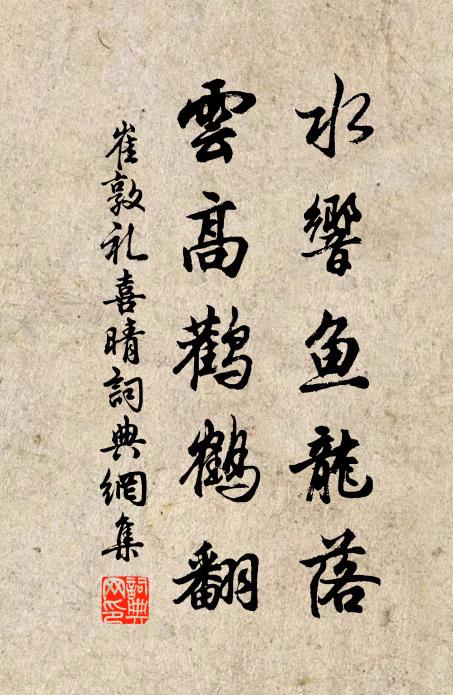 水響魚龍落
雲高鸛鶴翻
崔敦礼喜晴詞典網集
詞典網印